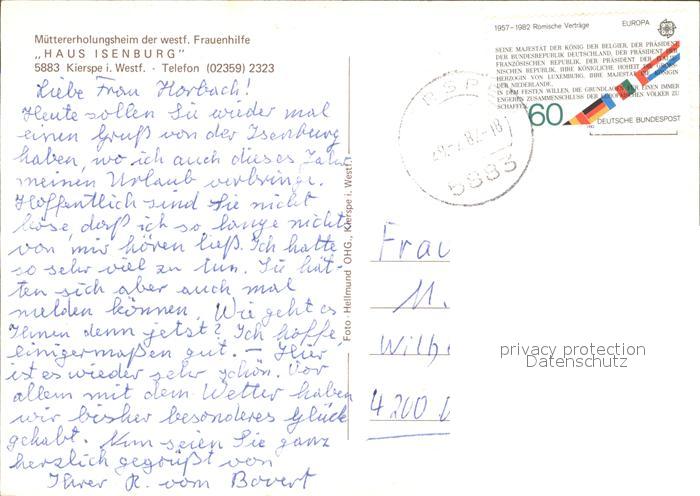 Müttererholungsheim der westf. Frauenhilfe
„HAUS ISENBURG"
5883 Kierspe i. Westf. · Telefon (02359) 2323
Liebe Frau Horbach!
Heute sollen Sie wieder mal
einen Gruß von der Isenburg
haben, wo ich auch dieses Jahr
meinen Urlaub verbringe.
Hoffentlich sind Sie nicht
böse, daß ich so lange nichts
von mir hören ließ. Ich hatte
so sehr viel zu tun. Sie hät-
ten sich aber auch mal
melden können. Wie geht es
Ihnen denn jetzt? Ich hoffe
einigermaßen gut. – Hier
ist es wieder sehr schön. Vor
allem mit dem Wetter haben
wir bisher besonderes Glück
gehabt. Nun seien Sie ganz
herzlich gegrüßt von
Ihrer R. vom Bovert
Foto - Hellmund OHG., Kierspe i. Westf.
1957–1982 Römische Verträge
EUROPA
SEINE MAJESTÄT DER KÖNIG DER BELGIER, DER PRÄSIDENT
DER BUNDESREPUBLIK DEUTSCHLAND, DER PRÄSIDENT DER
FRANZÖSISCHEN REPUBLIK, DER PRÄSIDENT DER ITALIE-
NISCHEN REPUBLIK, IHRE KÖNIGLICHE HOHEIT DIE GROSS-
HERZOGIN VON LUXEMBURG, IHRE MAJESTÄT DIE KÖNIGIN
DER NIEDERLANDE,
IN DEM FESTEN WILLEN, DIE GRUNDLAGEN FÜR EINEN IMMER
ENGEREN ZUSAMMENSCHLUSS DER EUROPÄISCHEN VÖLKER ZU
SCHAFFEN
60
1982
DEUTSCHE BUNDESPOST
5883
Frau
M.
Wilh
4200
privacy protection
Datenschutz